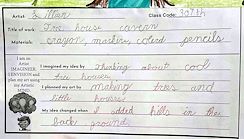 Artist: & Marr Class Code: 307th
Title of work Tree house cavern
Materials: crayon, markers, colored pencils
I am an
Artist
IMAGINEER.
I ENVISION
and plan
my art using
my Artistic
I imagined my idea by Thinking about cool
tree houses
I planned my art by making trees and
little houses
My idea changed when I added hills in the
back ground